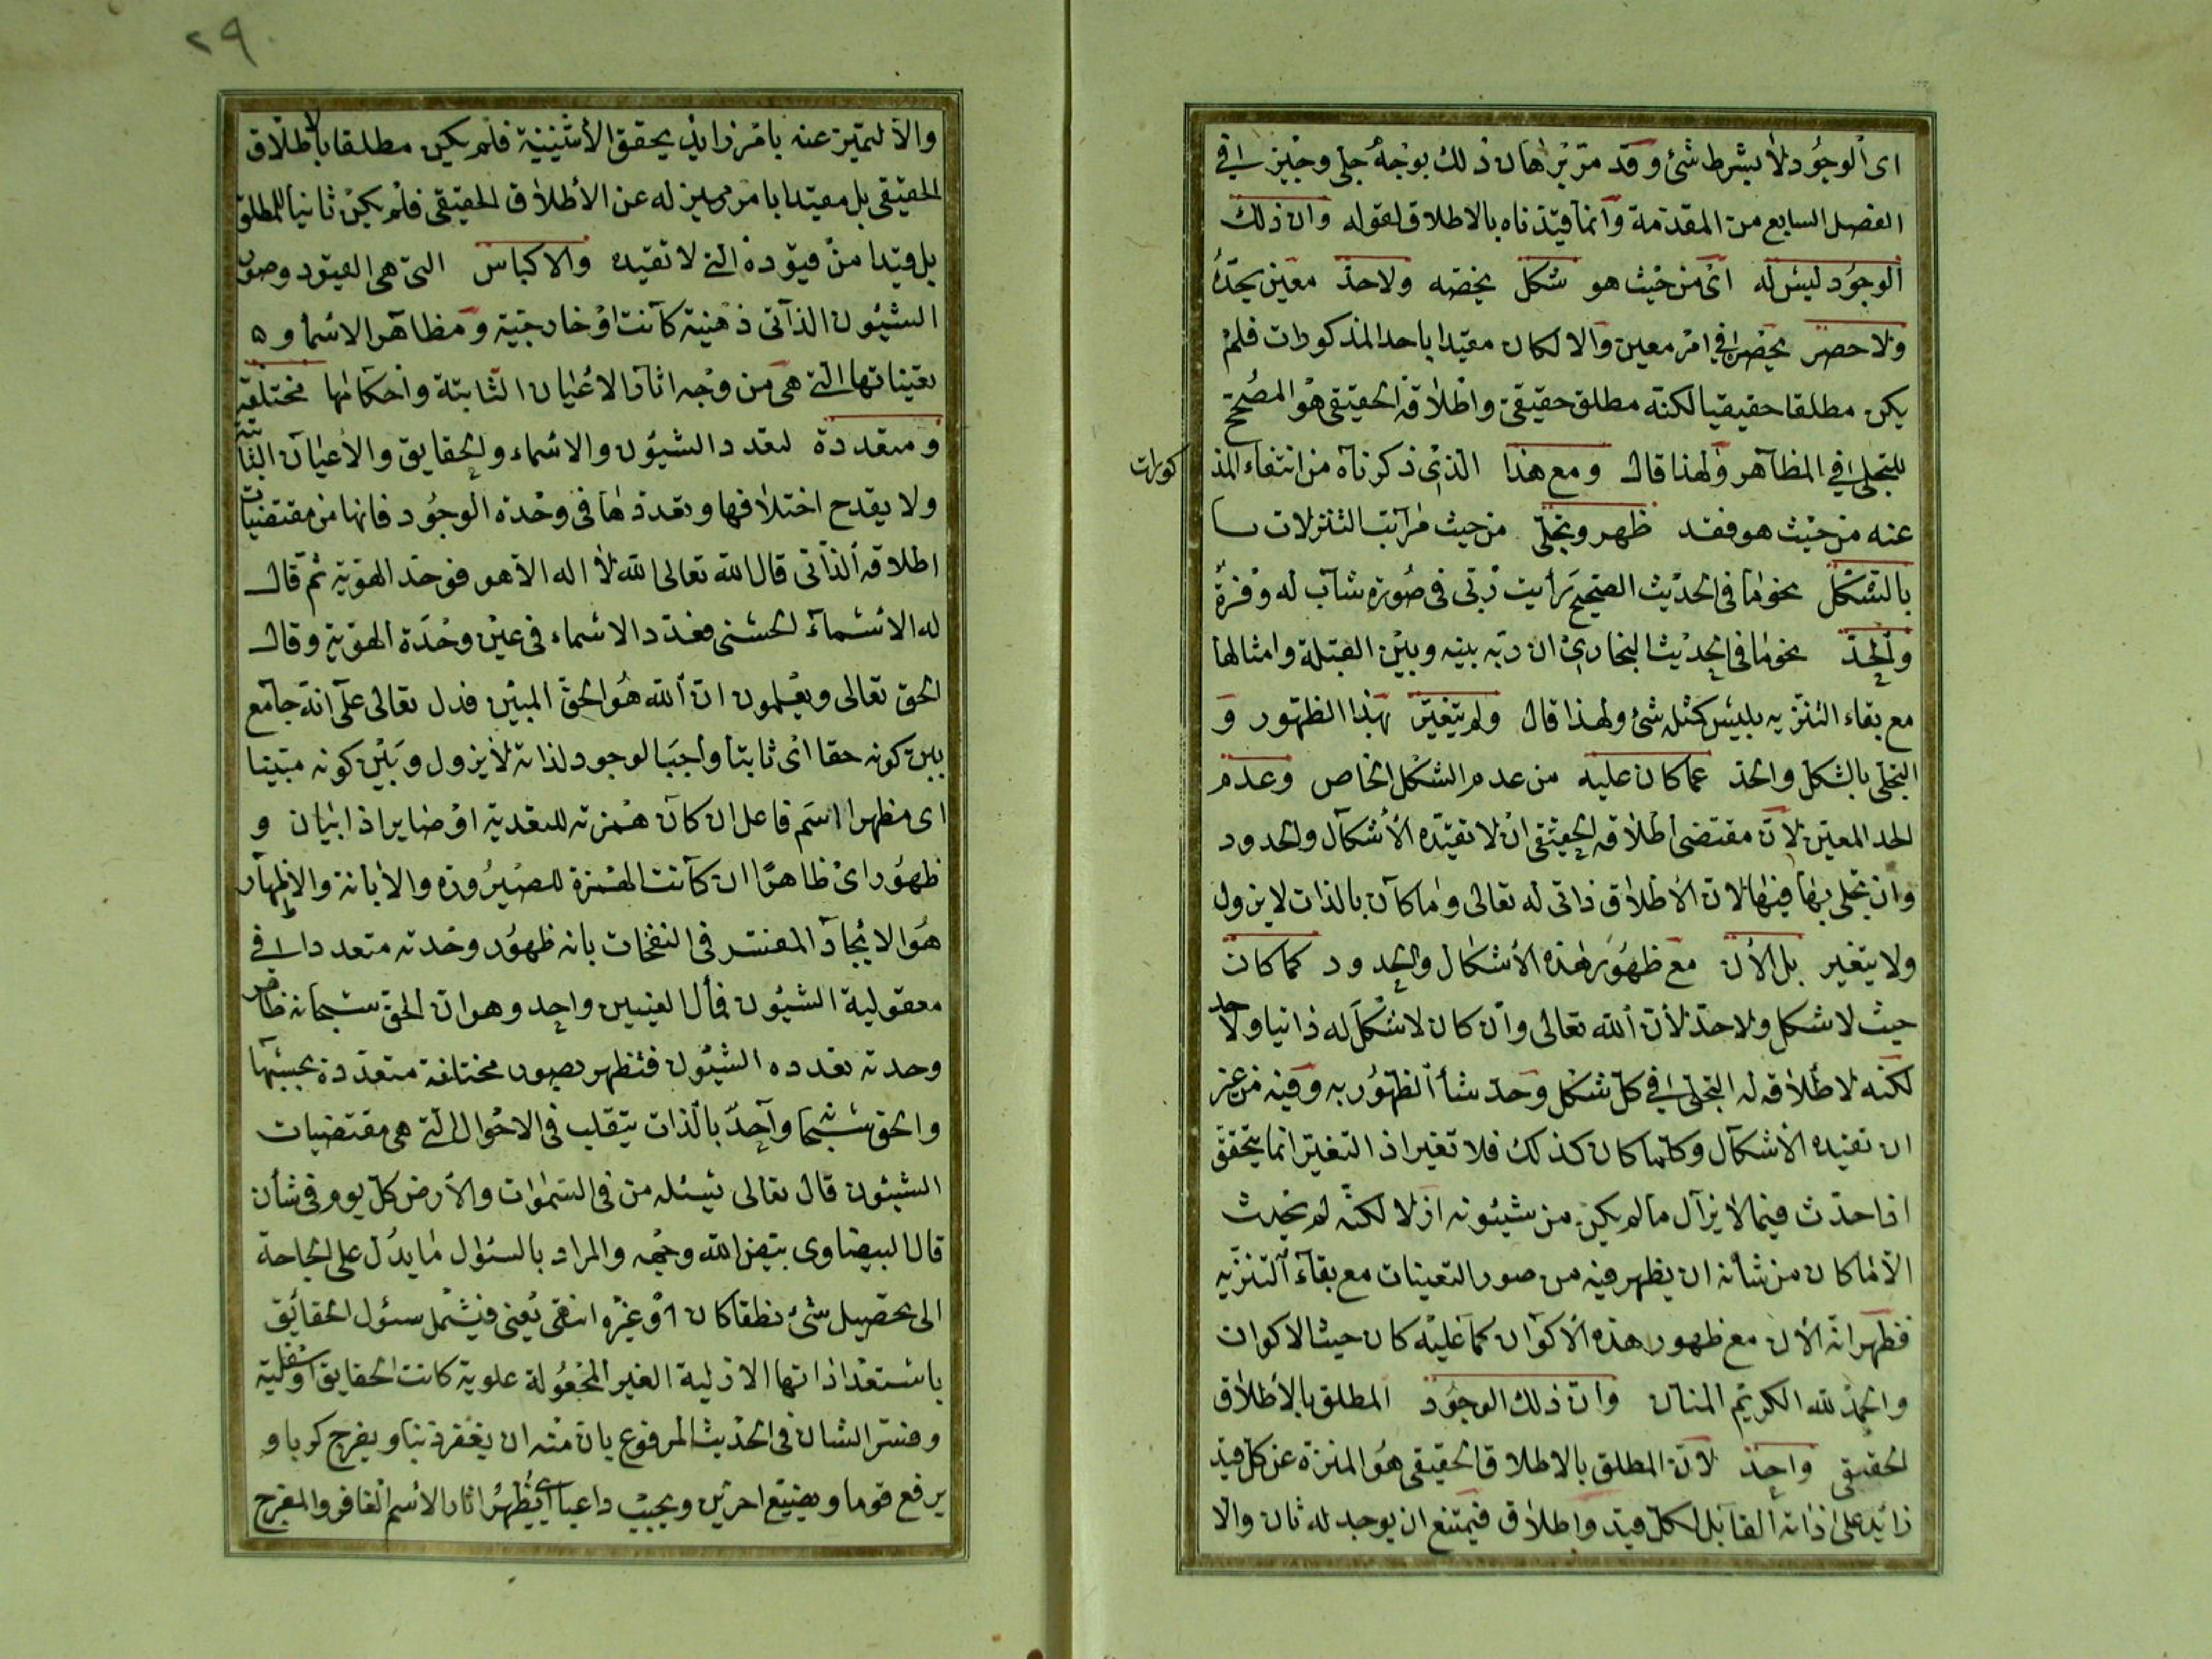 اى الوجود لا بشرط شئ وقد مرّ برهان ذلك بوجه جلى وجيز فى
الفصل السابع من المقدمة وانما قيّدناه بالاطلاق لقوله وان ذلك
الوجود ليس له اى من حيث هو شكل يخصّه ولا حدّ معين يحدّه
ولا حصر يحصره فى امر معين والا لكان مقيدا باحد المذكورات فلم
يكن مطلقا حقيقيا لكنه مطلق حقيقى واطلاقه الحقيقى هو المصحح
للتجلى فى المظاهر ولهذا قال ومع هذا الذى ذكرناه من انتفاء المذ
كورات
عنه من حيث هو فقد ظهر وتجلّى من حيث مراتب التنزلات
بالشكل نحو ما فى الحديث الصحيح رأيت ربّى فى صورة شاب له وفرة
والحدّ نحو ما فى حديث البخارى ان ربّه بينه وبين القبلة وامثالها
مع بقاء التنزيه بليس كمثله شئ ولهذا قال ولم يتغيّر بهذا الظهور و
التجلى بالشكل والحد عما كان عليه من عدم الشكل الخاص وعدم
الحد المعين لان مقتضى اطلاقه الحقيقى ان لا تقيّده الأشكال والحدود
وان تجلى بها فيها لان الاطلاق ذاتى له تعالى وما كان بالذات لا يزول
ولا يتغير بل الأن مع ظهوره بهذه الأشكال والحدود كما كان
حيث لا شكل ولا حدّ لأن الله تعالى وان كان لا شكل له ذاتيا ولا حد
لكنّه لاطلاقه له التجلى فى كل شكل وحد شأ الظهور به وفيه من غير
ان تقيده الأشكال وكلما كان كذلك فلا تغير اذ التغيّر انما يتحقق
اذا حدث فيما لا يزال ما لم يكن من شيئونه ازلا لكنّه لم يحدث
الّا ما كان من شأنه ان يظهر فيه من صور التعينات مع بقاء التنزيه
فظهر انه الأن مع ظهور هذه الأكوان كما عليه كان حيث لا كوان
والحمد لله الكريم المنان وان ذلك الوجود المطلق بالأطلاق
الحقيقى واحد لان المطلق بالاطلاق الحقيقى هو المنزه عن كل قيد
زائد على ذاته القابل لكل قيد واطلاق فيمتنع ان يوجد له ثان والا
٢٩
والّا لتميّز عنه بامر زايد يحقق الأثنينية فلم يكن مطلقا بالاطلاق
الحقيقى بل مقيدا بامر مميز له عن الأطلاق الحقيقى فلم يكن ثانيا للمطلق
بل قيدا من قيوده التى لا تقيده والاكباس التى هى القيود وصور
الشيئون الذاتى ذهنية كانت او خارجية ومظاهر الاسماء و
تعيناتها التى هى من وجه اثار الاعيان الثابتة واحكامها مختلفة
ومتعددة لتعدد الشيئون والاسماء والحقايق والاعيان الثابتة
ولا يقدح اختلافها وتعددها فى وحدة الوجود فانها من مقتضيات
اطلاقه الذاتى قال الله تعالى الله لا اله الا هو فوحّد الهوية ثم قال
له الاسماء الحسنى فعدّد الاسماء فى عين وحدة الهوية وقال
الحق تعالى ويعلمون ان الله هو الحق المبين فدل تعالى على انه جامع
بين كونه حقا اى ثابتا واجب الوجود لذاته لا يزول وبين كونه مبينا
اى مظهرا اسم فاعل ان كان همزته للتعدية او صايرا ذا ابيان و
ظهور اى ظاهرا ان كانت الهمزة للصيرورة والابانة والاظهار
هو الايجاد المفسّر فى النفحات بانه ظهور وحدته متعددا فى
معقولية الشيئون فمأل المعنيين واحد وهو ان الحق سبحانه ظاهر
وحدته تعدده الشيئون فتظهر بصور مختلفة متعددة بحسبها
والحق سبحا واحدّ بالذات يتقلب فى الاحوال التى هى مقتضيات
الشيئون قال تعالى يسئله من فى السموات والأرض كل يوم فى شأن
قال البيضاوى بيّض الله وجهه والمراد بالسئول ما يدل على الحاجة
الى تحصيل شئ نطقا كان او غيره انتهى يعنى فيشمل سئول الحقايق
باستعداذاتها الازلية الغير المجعولة علوية كانت الحقايق او سفلية
وفسّر الشان فى الحديث المرفوع بان منه ان يغفر ذنبا ويفرج كربا و
يرفع قوما ويضع اخرين ويجيب داعيا اى يظهر اثار الاسم الغافر والمفرج